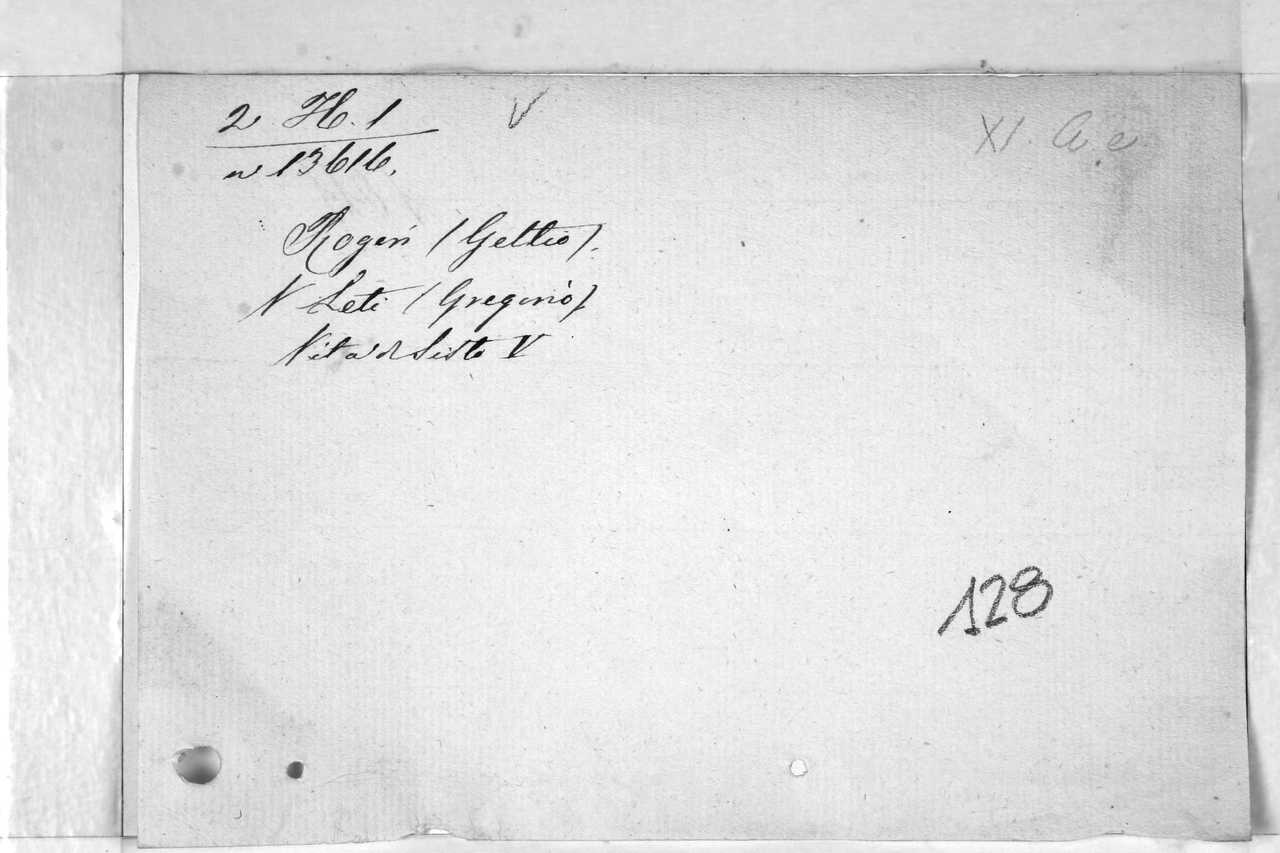 2 H. 1
V
XI. A. e
nº 13616.
Rogeri (Geltio).
V Leti (Gregorio)
Vita di Sisto V
128